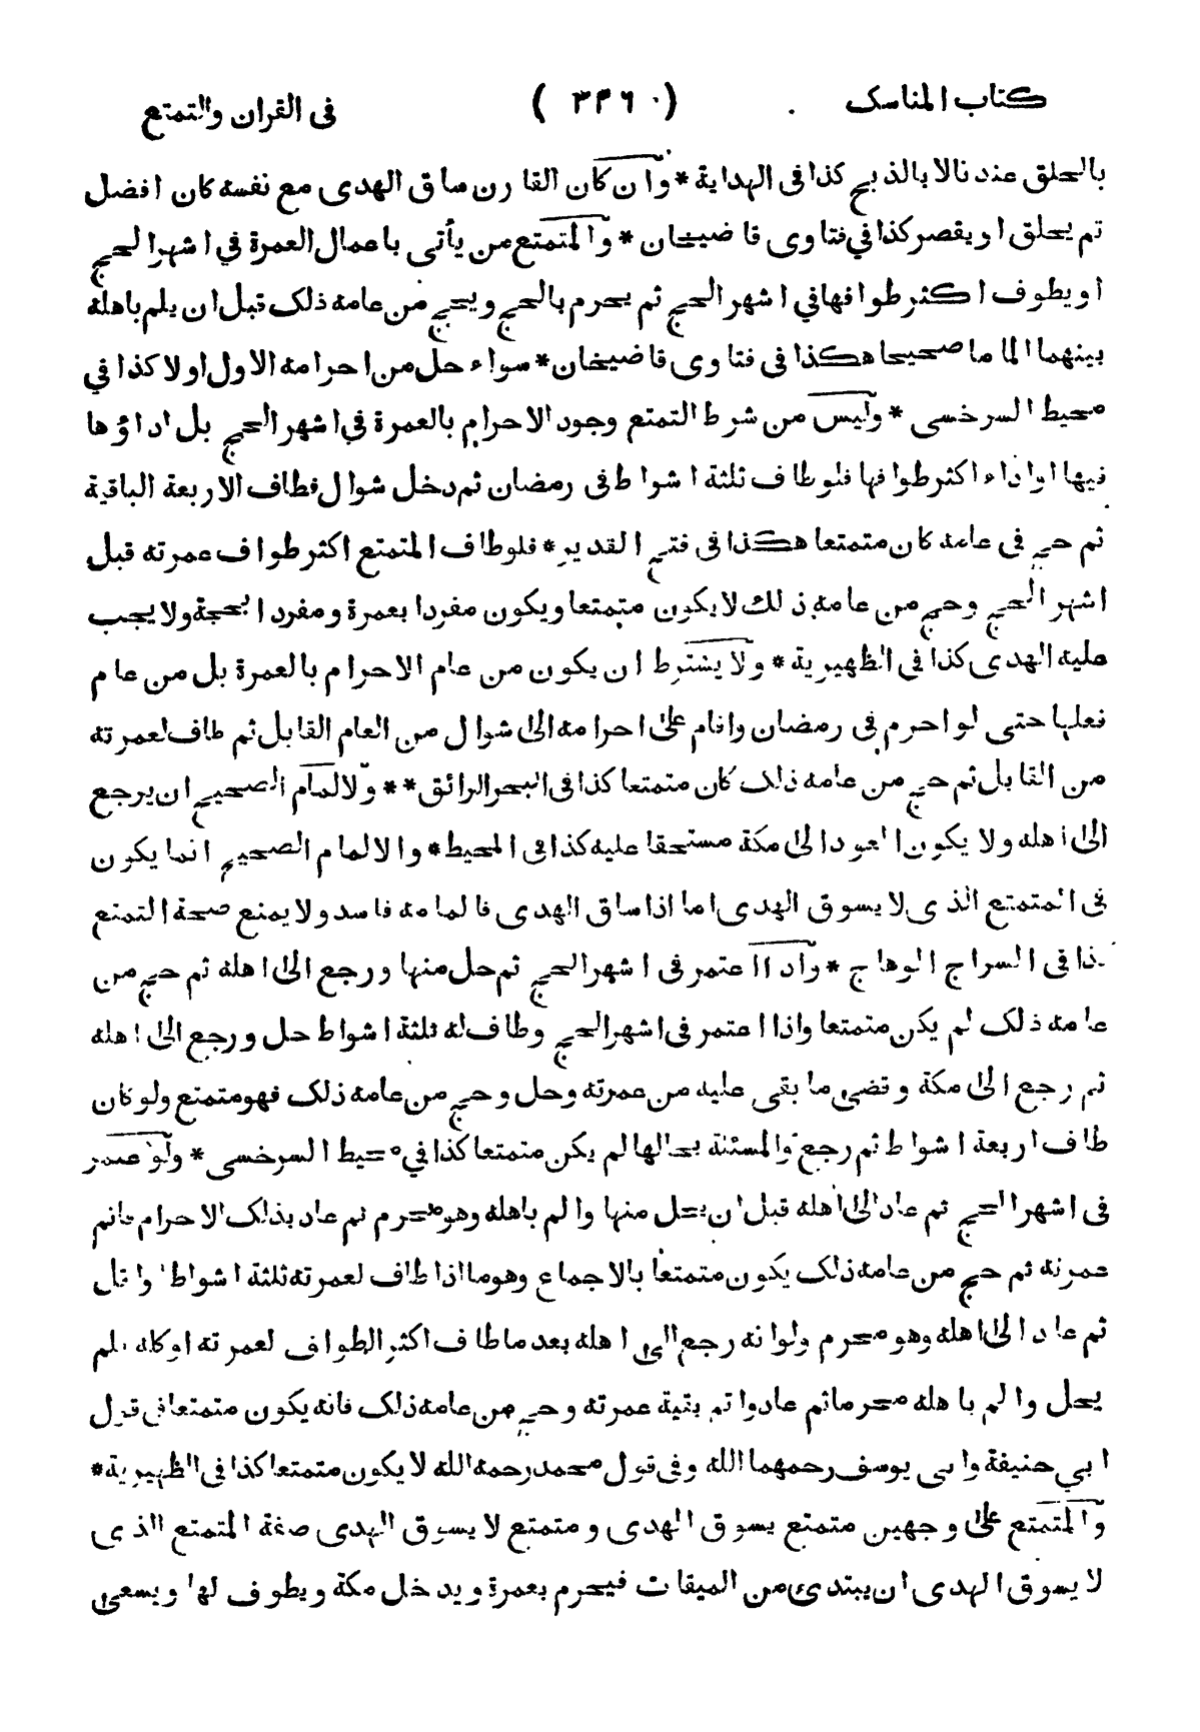 كتاب المناسك (٣٣٦) فى القران والتمتع
بالحلق عندنا لا بالذبح كذا فى الهداية * وان كان القارن ساق الهدى مع نفسه كان افضل
ثم يحلق او يقصر كذا في فتاوى قاضيخان * والمتمتع من يأتى باعمال العمرة في اشهر الحج
او يطوف اكثر طوافها في اشهر الحج ثم يحرم بالحج ويحج من عامه ذلك قبل ان يلم باهله
بينهما الماما صحيحا هكذا فى فتاوى قاضيخان * سواء حل من احرامه الاول اولا كذا في
محيط السرخسى * وليس من شرط التمتع وجود الاحرام بالعمرة في اشهر الحج بل اداؤها
فيها او اداء اكثر طوافها فلو طاف ثلثة اشواط فى رمضان ثم دخل شوال فطاف الاربعة الباقية
ثم حج فى عامه كان متمتعا هكذا فى فتح القدير * فلو طاف المتمتع اكثر طواف عمرته قبل
اشهر الحج وحج من عامه ذلك لا يكون متمتعا ويكون مفردا بعمرة ومفردا بحجة ولا يجب
عليه الهدى كذا فى الظهيرية * ولا يشترط ان يكون من عام الاحرام بالعمرة بل من عام
فعلها حتى لو احرم فى رمضان واقام على احرامه الى شوال من العام القابل ثم طاف لعمرته
من القابل ثم حج من عامه ذلك كان متمتعا كذا فى البحر الرائق * * ولالمام الصحيح ان يرجع
الى اهله ولا يكون العود الى مكة مستحقا عليه كذا فى المحيط * والالمام الصحيح انما يكون
فى المتمتع الذى لا يسوق الهدى اما اذا ساق الهدى فالمامه فاسد ولا يمنع صحة التمتع
كذا فى السراج الوهاج * واذا اعتمر فى اشهر الحج ثم حل منها ورجع الى اهله ثم حج من
عامه ذلك لم يكن متمتعا واذا اعتمر فى اشهر الحج وطاف له ثلثة اشواط حل ورجع الى اهله
ثم رجع الى مكة وقضى ما بقى عليه من عمرته وحل وحج من عامه ذلك فهو متمتع ولو كان
طاف اربعة اشواط ثم رجع والمسئلة بحالها لم يكن متمتعا كذا في محيط السرخسى * ولو اعتمر
فى اشهر الحج ثم عاد الى اهله قبل ان يحل منها والم باهله وهو محرم ثم عاد بذلك الاحرام فاتم
عمرته ثم حج من عامه ذلك يكون متمتعا بالاجماع وهو ما اذا طاف لعمرته ثلثة اشواط او اقل
ثم عاد الى اهله وهو محرم ولو انه رجع الى اهله بعد ما طاف اكثر الطواف لعمرته او كله فلم
يحل والم باهله محرما ثم عاد واتم بقية عمرته وحج من عامه ذلك فانه يكون متمتعا في قول
ابي حنيفة وابى يوسف رحمهما الله وفى قول محمد رحمه الله لا يكون متمتعا كذا فى الظهيرية *
والمتمتع على وجهين متمتع يسوق الهدى ومتمتع لا يسوق الهدى صفة المتمتع الذى
لا يسوق الهدى ان يبتدئ من الميقات فيحرم بعمرة ويدخل مكة ويطوف لها ويسعى